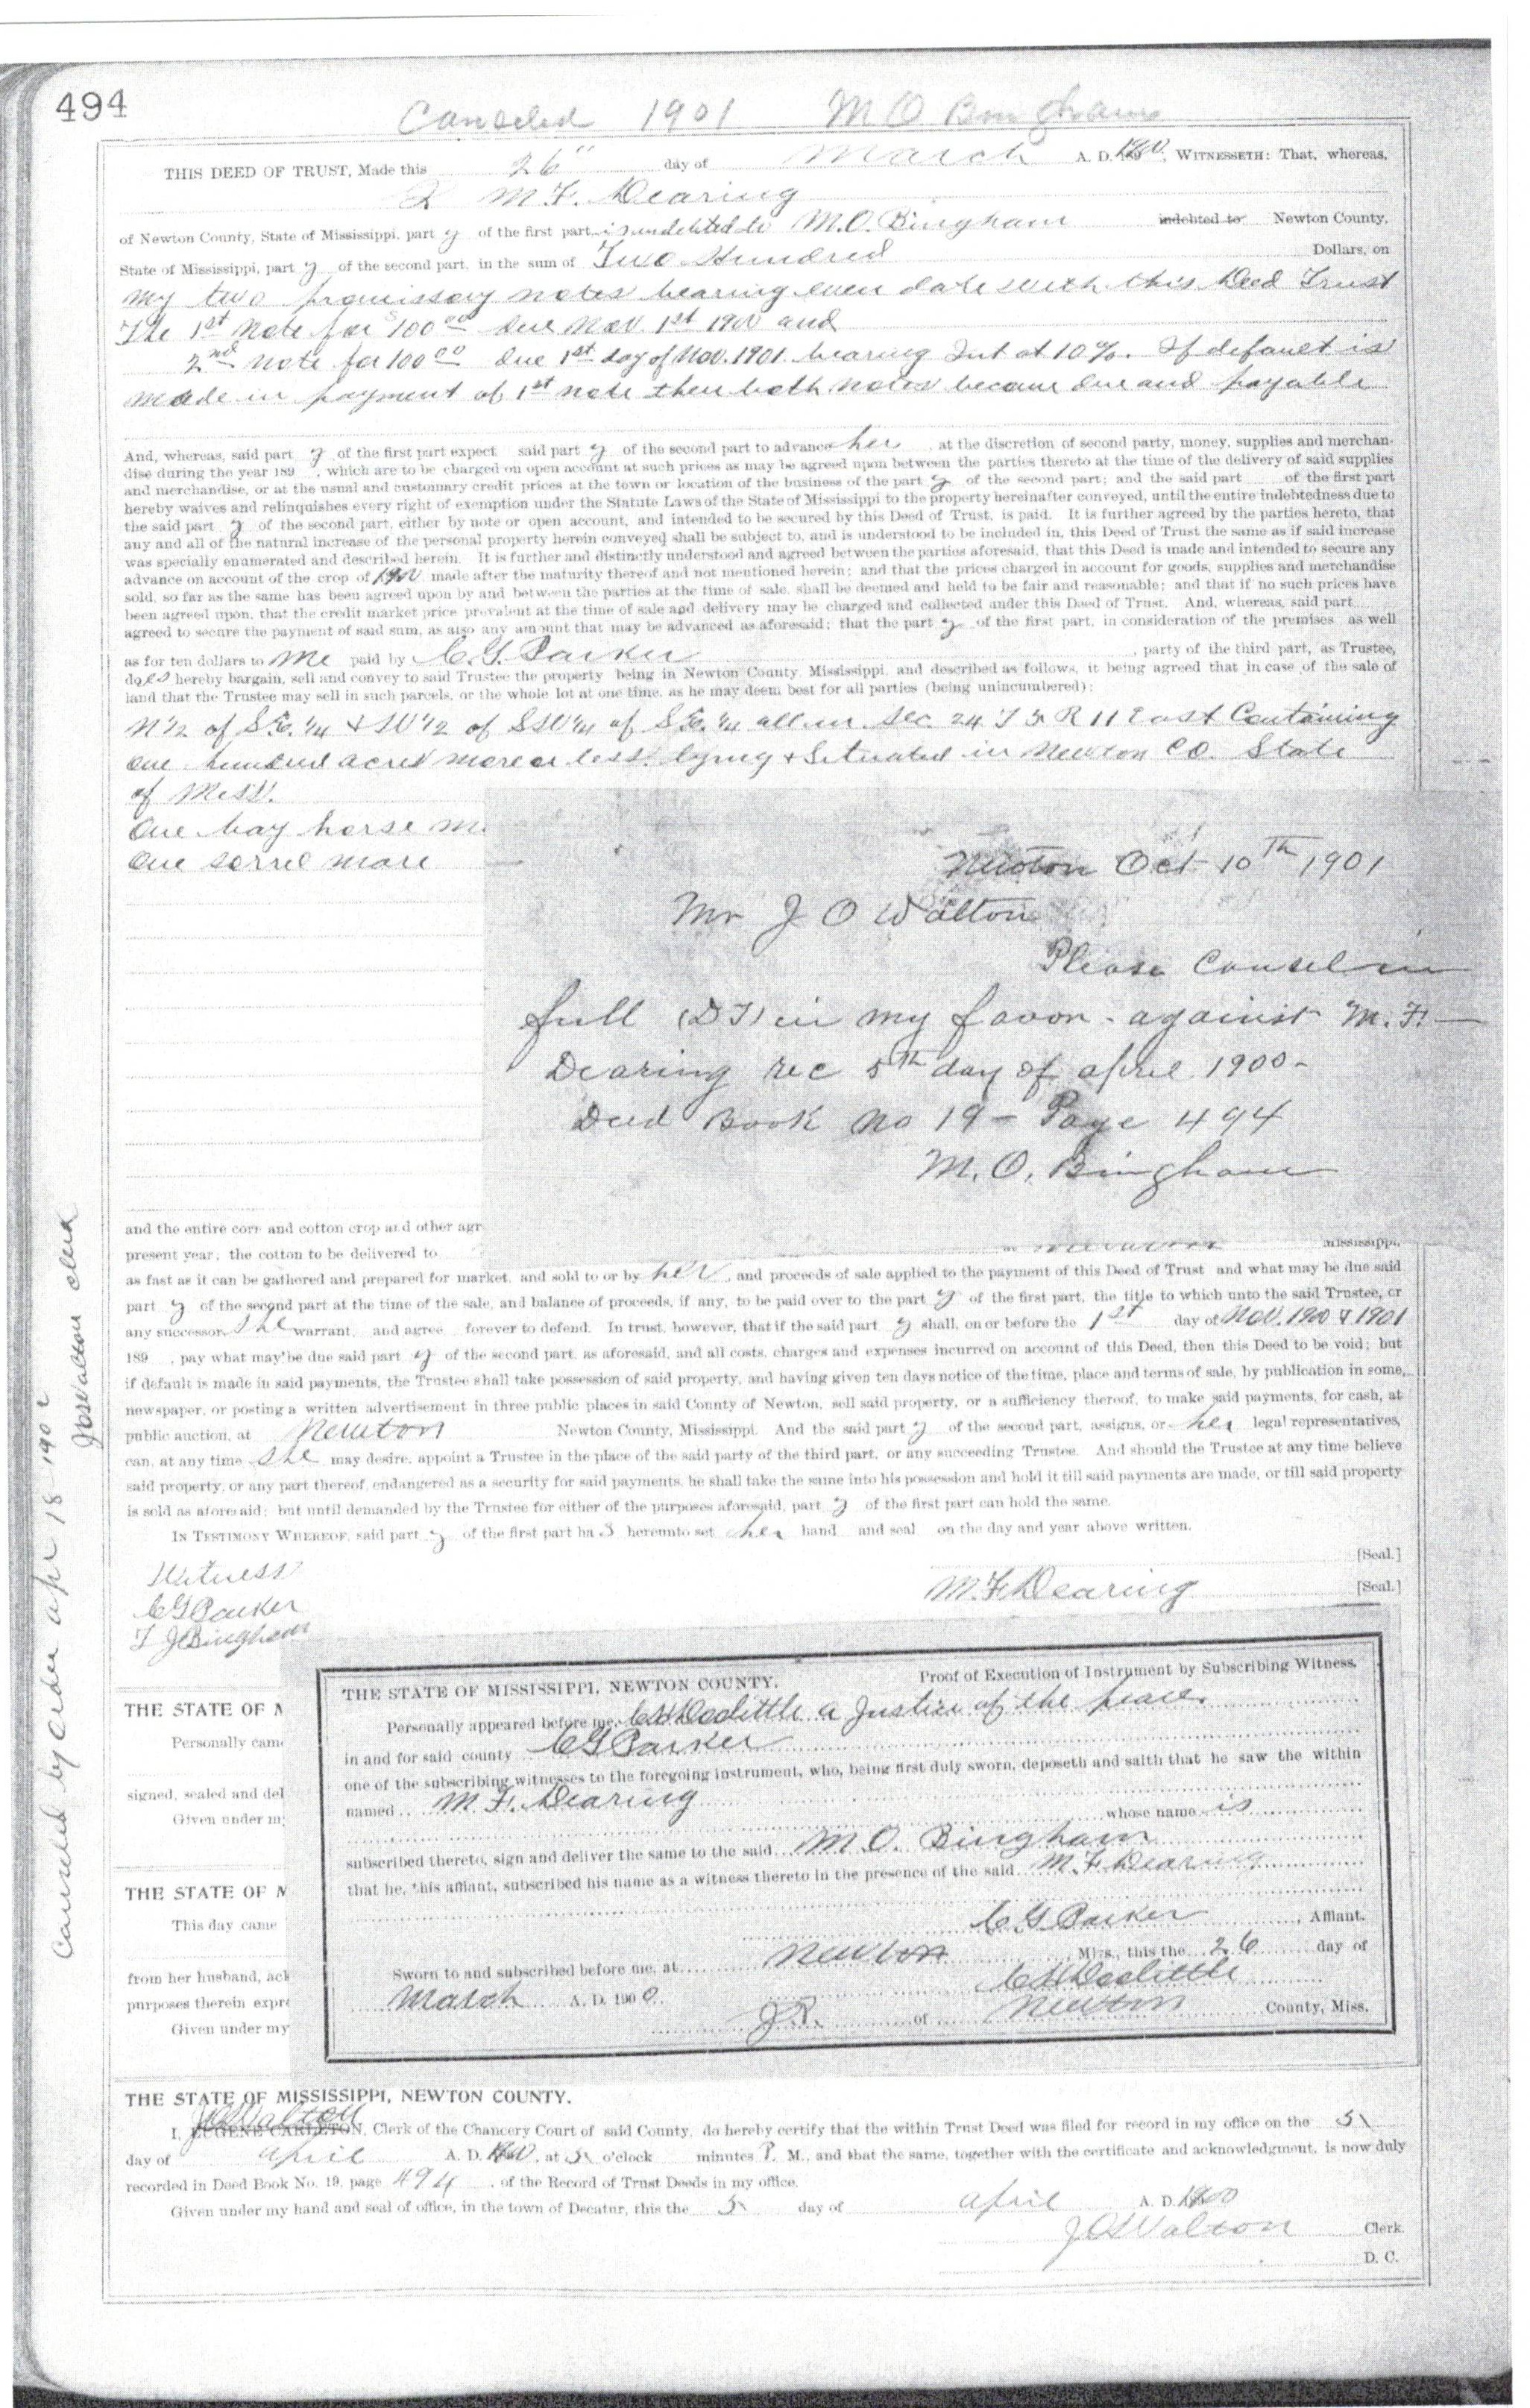 494
Canceled 1901 M O Bingham
THIS DEED OF TRUST, Made this 26" day of March A. D. 1900, WITNESSETH: That, whereas,
I M. F. Dearing
of Newton County, State of Mississippi, party of the first part, is indebted to M. O. Bingham indebted to Newton County,
State of Mississippi, party of the second part, in the sum of Two Hundred Dollars, on
my two promissory notes bearing even date with this Deed Trust
The 1st note for $100.00 due Nov. 1st 1900 and
2nd note for 100.00 due 1st day of Nov. 1901 bearing Int at 10%. If default is
made in payment of 1st note then both notes became due and payable
And, whereas, said party of the first part expect said party of the second part to advance her, at the discretion of second party, money, supplies and merchan-
dise during the year 189 , which are to be charged on open account at such prices as may be agreed upon between the parties thereto at the time of the delivery of said supplies
and merchandise, or at the usual and customary credit prices at the town or location of the business of the party of the second part; and the said part of the first part
hereby waives and relinquishes every right of exemption under the Statute Laws of the State of Mississippi to the property hereinafter conveyed, until the entire indebtedness due to
the said party of the second part, either by note or open account, and intended to be secured by this Deed of Trust, is paid. It is further agreed by the parties hereto, that
any and all of the natural increase of the personal property herein conveyed shall be subject to, and is understood to be included in, this Deed of Trust the same as if said increase
was specially enumerated and described herein. It is further and distinctly understood and agreed between the parties aforesaid, that this Deed is made and intended to secure any
advance on account of the crop of 1900 made after the maturity thereof and not mentioned herein; and that the prices charged in account for goods, supplies and merchandise
sold, so far as the same has been agreed upon by and between the parties at the time of sale, shall be deemed and held to be fair and reasonable; and that if no such prices have
been agreed upon, that the credit market price prevalent at the time of sale and delivery may be charged and collected under this Deed of Trust. And, whereas, said part
agreed to secure the payment of said sum, as also any amount that may be advanced as aforesaid; that the party of the first part, in consideration of the premises as well
as for ten dollars to me paid by C. G. Parker, party of the third part, as Trustee,
does hereby bargain, sell and convey to said Trustee the property being in Newton County, Mississippi, and described as follows, it being agreed that in case of the sale of
land that the Trustee may sell in such parcels, or the whole lot at one time, as he may deem best for all parties (being unincumbered):
N 1/2 of S.E. 1/4 & W 1/2 of S W 1/4 of S.E. 1/4 all in Sec. 24 T 5 R 11 East Containing
one hundred acres more or less. lying & Situated in Newton Co. State
of Miss.
One bay horse
One sorrel mare
Newton Oct 10th 1901
Mr J O Walton
Please Cancel in
full (D T) in my favor - against M. F.
Dearing rec 5th day of april 1900 -
Deed Book No 19 - Page 494
M. O. Bingham
and the entire corn and cotton crop and other agr
present year; the cotton to be delivered to Mississippi,
as fast as it can be gathered and prepared for market, and sold to or by her, and proceeds of sale applied to the payment of this Deed of Trust and what may be due said
party of the second part at the time of the sale, and balance of proceeds, if any, to be paid over to the party of the first part, the title to which unto the said Trustee, or
any successor, she warrant and agree forever to defend. In trust, however, that if the said party shall, on or before the 1st day of Nov. 1900 & 1901
189 , pay what may be due said party of the second part, as aforesaid, and all costs, charges and expenses incurred on account of this Deed, then this Deed to be void; but
if default is made in said payments, the Trustee shall take possession of said property, and having given ten days notice of the time, place and terms of sale, by publication in some,
newspaper, or posting a written advertisement in three public places in said County of Newton, sell said property, or a sufficiency thereof, to make said payments, for cash, at
public auction, at Newton Newton County, Mississippi. And the said party of the second part, assigns, or her legal representatives,
can, at any time she may desire, appoint a Trustee in the place of the said party of the third part, or any succeeding Trustee. And should the Trustee at any time believe
said property, or any part thereof, endangered as a security for said payments, he shall take the same into his possession and hold it till said payments are made, or till said property
is sold as aforesaid; but until demanded by the Trustee for either of the purposes aforesaid, party of the first part can hold the same.
IN TESTIMONY WHEREOF, said party of the first part has hereunto set her hand and seal on the day and year above written.
[Seal.]
Witness
M. F. Dearing [Seal.]
C G Parker
T J Bingham
Canceled by order apr 18 1902
J O Walton clerk
THE STATE OF M
Personally came
signed, sealed and del
Given under my
THE STATE OF M
This day came
from her husband, ack
purposes therein expre
Given under my
THE STATE OF MISSISSIPPI, NEWTON COUNTY. Proof of Execution of Instrument by Subscribing Witness.
Personally appeared before me, C H Doolittle a Justice of the peace
in and for said county C G Parker
one of the subscribing witnesses to the foregoing instrument, who, being first duly sworn, deposeth and saith that he saw the within
named M. F. Dearing
whose name is
subscribed thereto, sign and deliver the same to the said M. O. Bingham
that he, this affiant, subscribed his name as a witness thereto in the presence of the said M. F. Dearing
C G Parker, Affiant.
Sworn to and subscribed before me, at Newton, Miss., this the 26 day of
March A. D. 1900. C H Doolittle
J. P. of Newton County, Miss.
THE STATE OF MISSISSIPPI, NEWTON COUNTY.
J O Walton
I, EUGENE CARLETON, Clerk of the Chancery Court of said County, do hereby certify that the within Trust Deed was filed for record in my office on the 5
day of april A. D. 1900, at 5 o'clock minutes P. M., and that the same, together with the certificate and acknowledgment, is now duly
recorded in Deed Book No. 19, page 494, of the Record of Trust Deeds in my office.
Given under my hand and seal of office, in the town of Decatur, this the 5 day of april A. D. 1900
J O Walton Clerk.
D. C.